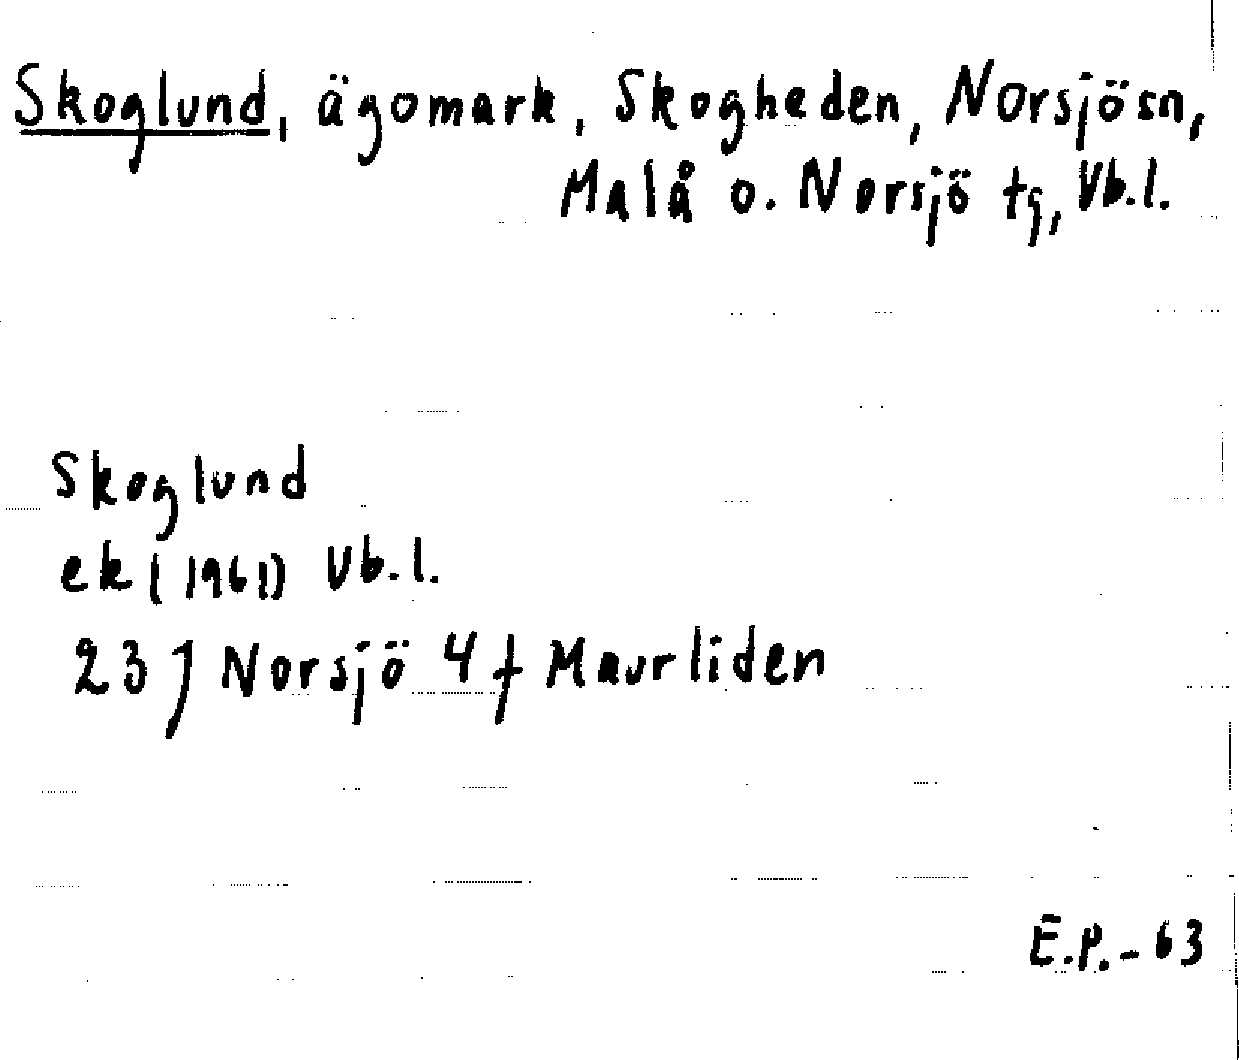 Skoglund, ägomark, Skogheden, Norsjösn,
Malå o. Norsjö tg, Vb.l.
Skoglund
ek (1961) Vb.l.
23 J Norsjö 4 f Maurliden
E.P.-63